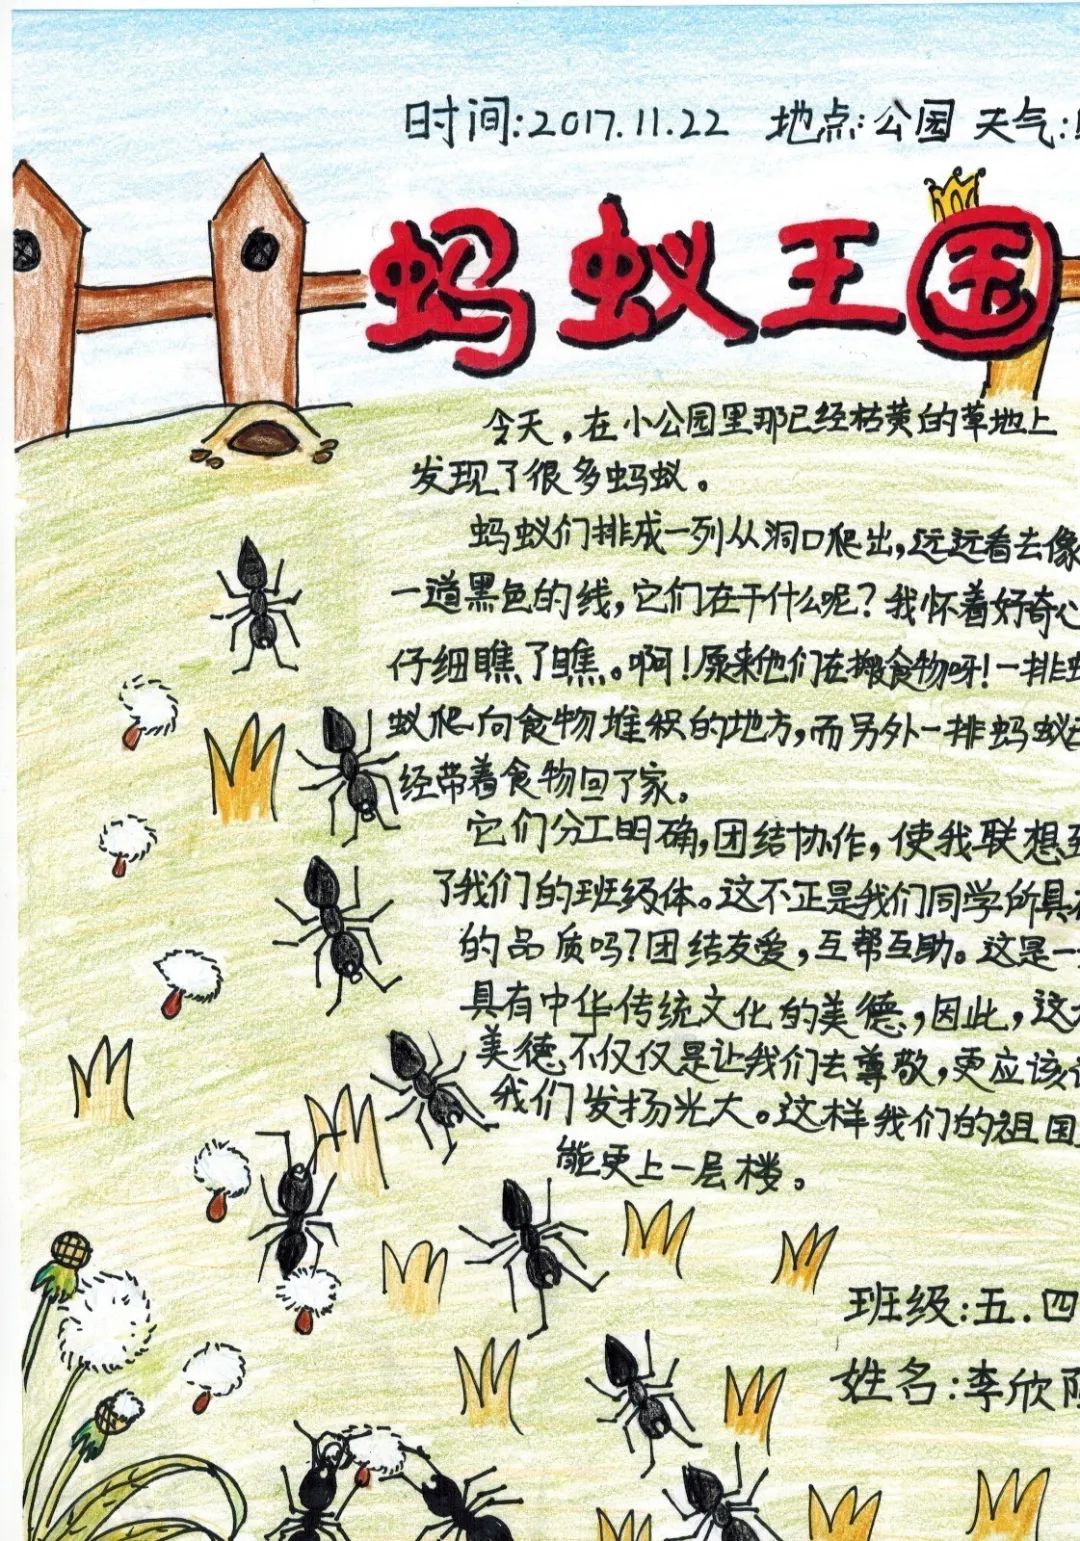 时间:2017.11.22 地点:公园 天气:
蚂蚁王国
今天,在小公园里那已经枯黄的草地上
发现了很多蚂蚁。
蚂蚁们排成一列从洞口爬出,远远看去像
一道黑色的线,它们在干什么呢?我怀着好奇心
仔细瞧了瞧。啊!原来他们在搬食物呀!一排
蚁爬向食物堆积的地方,而另外一排蚂蚁
经带着食物回了家。
它们分工明确,团结协作,使我联想
了我们的班级体。这不正是我们同学所具
的品质吗?团结友爱,互帮互助。这是一
具有中华传统文化的美德,因此,这
美德不仅仅是让我们去尊敬,更应该
我们发扬光大。这样我们的祖国
能更上一层楼。
班级:五.四
姓名:李欣